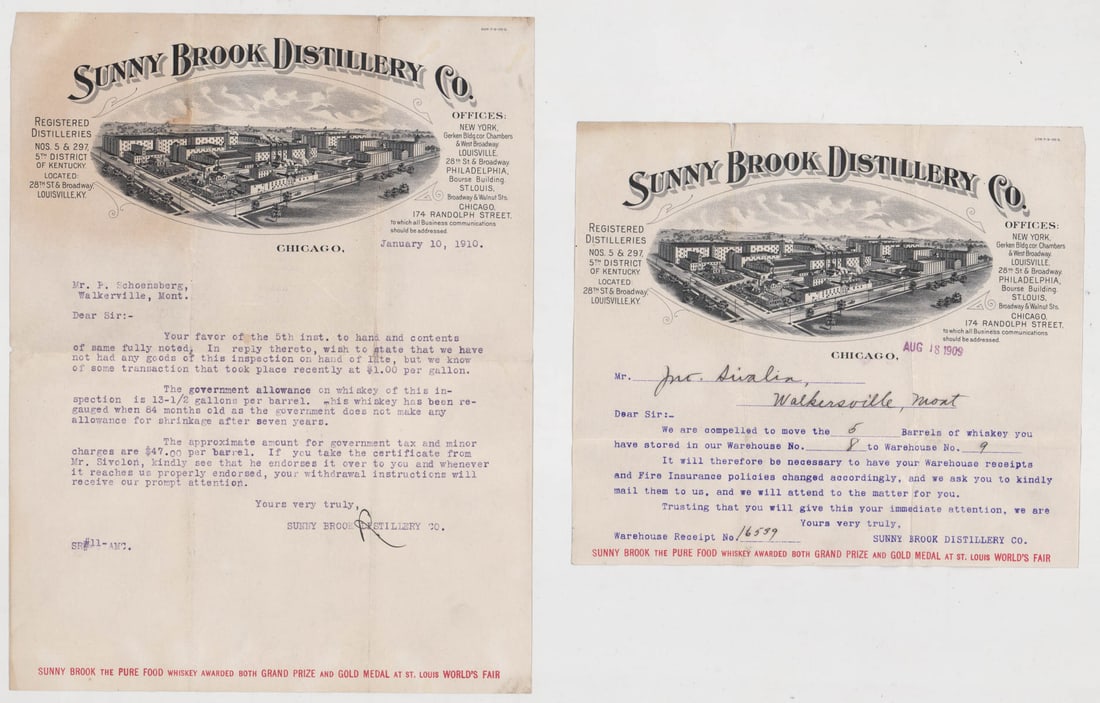 SUNNY BROOK DISTILLERY CO.
REGISTERED
DISTILLERIES
NOS. 5 & 297,
5TH DISTRICT
OF KENTUCKY
LOCATED:
28TH ST & Broadway,
LOUISVILLE, KY.
OFFICES:
NEW YORK,
Gerken Bldg. cor Chambers
& West Broadway
LOUISVILLE,
28TH St & Broadway.
PHILADELPHIA,
Bourse Building.
ST. LOUIS,
Broadway & Walnut Sts.
CHICAGO,
174 RANDOLPH STREET,
to which all Business communications
should be addressed.
CHICAGO,
January 10, 1910.
Mr. P. Schoensberg,
Walkerville, Mont.
Dear Sir:-
Your favor of the 5th inst. to hand and contents
of same fully noted. In reply thereto, wish to state that we have
not had any goods of this inspection on hand of late, but we know
of some transaction that took place recently at $1.00 per gallon.
The government allowance on whiskey of this in-
spection is 13-1/2 gallons per barrel. This whiskey has been re-
gauged when 84 months old as the government does not make any
allowance for shrinkage after seven years.
The approximate amount for government tax and minor
charges are $47.00 per barrel. If you take the certificate from
Mr. Sivolon, kindly see that he endorses it over to you and whenever
it reaches us properly endorsed, your withdrawal instructions will
receive our prompt attention.
Yours very truly,
SUNNY BROOK DISTILLERY CO.
SR#11-AMC.
SUNNY BROOK THE PURE FOOD WHISKEY AWARDED BOTH GRAND PRIZE AND GOLD MEDAL AT ST. LOUIS WORLD'S FAIR
SUNNY BROOK DISTILLERY CO.
REGISTERED
DISTILLERIES
NOS. 5 & 297,
5TH DISTRICT
OF KENTUCKY
LOCATED:
28TH ST & Broadway,
LOUISVILLE, KY.
OFFICES:
NEW YORK,
Gerken Bldg. cor Chambers
& West Broadway
LOUISVILLE,
28TH St & Broadway.
PHILADELPHIA,
Bourse Building.
ST. LOUIS,
Broadway & Walnut Sts.
CHICAGO,
174 RANDOLPH STREET,
to which all Business communications
should be addressed.
CHICAGO,
AUG 18 1909
Mr. Jno. Sivalin,
Walkersville, Mont
Dear Sir:-
We are compelled to move the 5 Barrels of whiskey you
have stored in our Warehouse No. 8 to Warehouse No. 9
It will therefore be necessary to have your Warehouse receipts
and Fire Insurance policies changed accordingly, and we ask you to kindly
mail them to us, and we will attend to the matter for you.
Trusting that you will give this your immediate attention, we are
Yours very truly,
Warehouse Receipt No. 16539 SUNNY BROOK DISTILLERY CO.
SUNNY BROOK THE PURE FOOD WHISKEY AWARDED BOTH GRAND PRIZE AND GOLD MEDAL AT ST. LOUIS WORLD'S FAIR